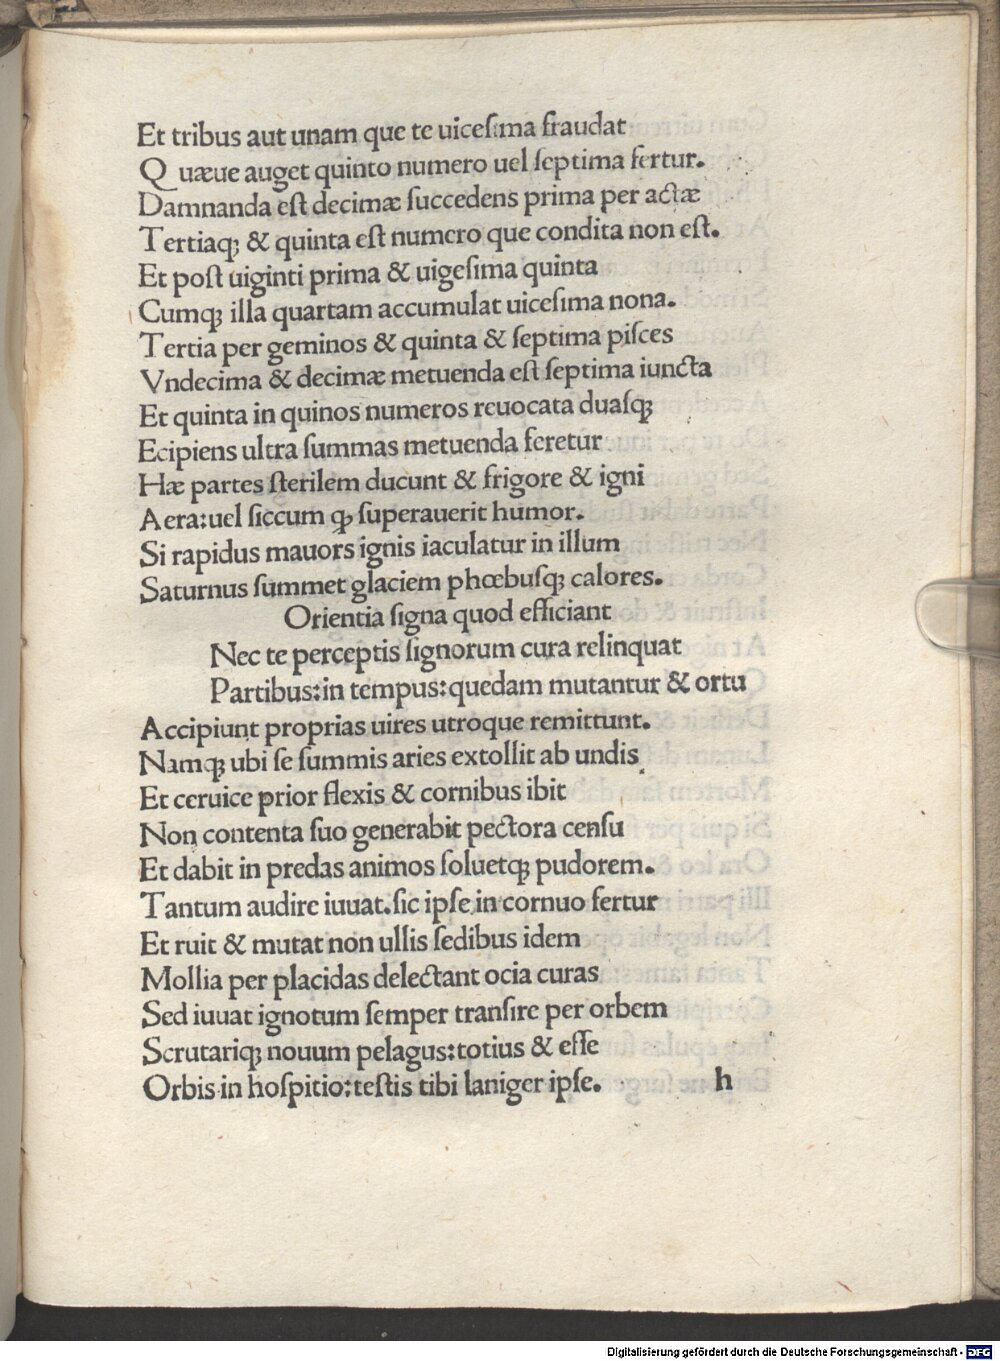 Et tribus aut unam que te uicesima fraudat
Quæue auget quinto numero uel septima fertur.
Damnanda est decimæ succedens prima per actæ
Tertiaqꝫ & quinta est numero que condita non est.
Et post uiginti prima & uigesima quinta
Cumqꝫ illa quartam accumulat uicesima nona.
Tertia per geminos & quinta & septima pisces
Vndecima & decimæ metuenda est septima iuncta
Et quinta in quinos numeros reuocata duasqꝫ
Ecipiens ultra summas metuenda feretur
Hæ partes sterilem ducunt & frigore & igni
Aera:uel siccum ꝙ superauerit humor.
Si rapidus mauors ignis iaculatur in illum
Saturnus summet glaciem phœbusqꝫ calores.
Orientia signa quod efficiant
Nec te perceptis signorum cura relinquat
Partibus:in tempus:quedam mutantur & ortu
Accipiunt proprias uires utroque remittunt.
Namqꝫ ubi se summis aries extollit ab undis
Et ceruice prior flexis & cornibus ibit
Non contenta suo generabit pectora censu
Et dabit in predas animos soluetqꝫ pudorem.
Tantum audire iuuat.sic ipse in cornuo fertur
Et ruit & mutat non ullis sedibus idem
Mollia per placidas delectant ocia curas
Sed iuuat ignotum semper transire per orbem
Scrutariqꝫ nouum pelagus:totius & esse
Orbis in hospitio:testis tibi laniger ipse. h
Digitalisierung gefördert durch die Deutsche Forschungsgemeinschaft - DFG